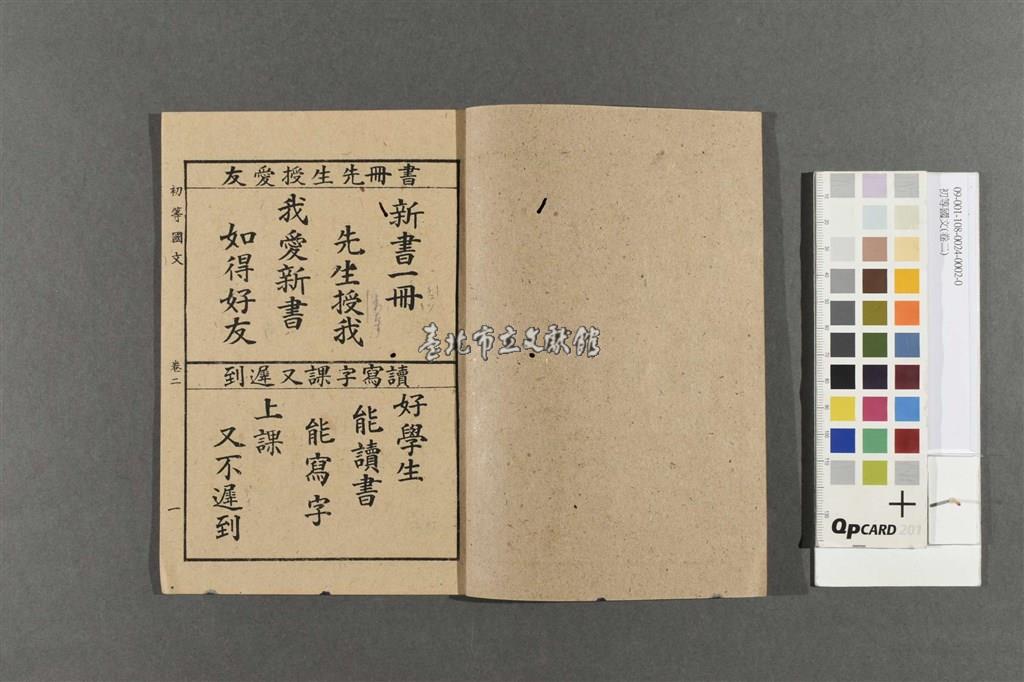 書冊先生授愛友
新書一冊
先生授我
我愛新書
如得好友
讀寫字課又遲到
好學生
能讀書
能寫字
上課
又不遲到
初等國文
卷二
一
臺北市立文獻館
09-001-108-0024-0002-0
初等國文(卷二)
QP CARD 201